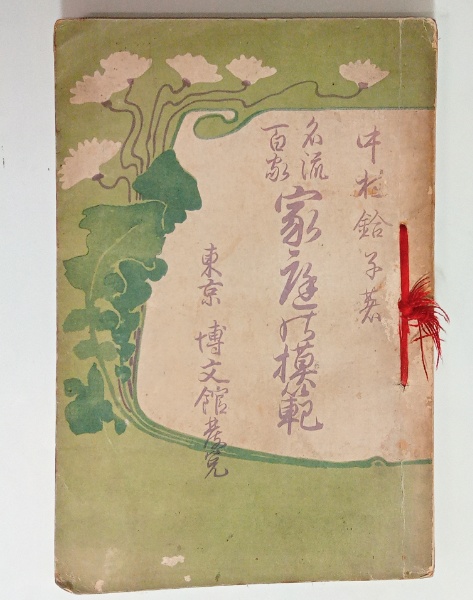 中村鈴子著
名流
百家
家庭の模範
東京 博文館發兌